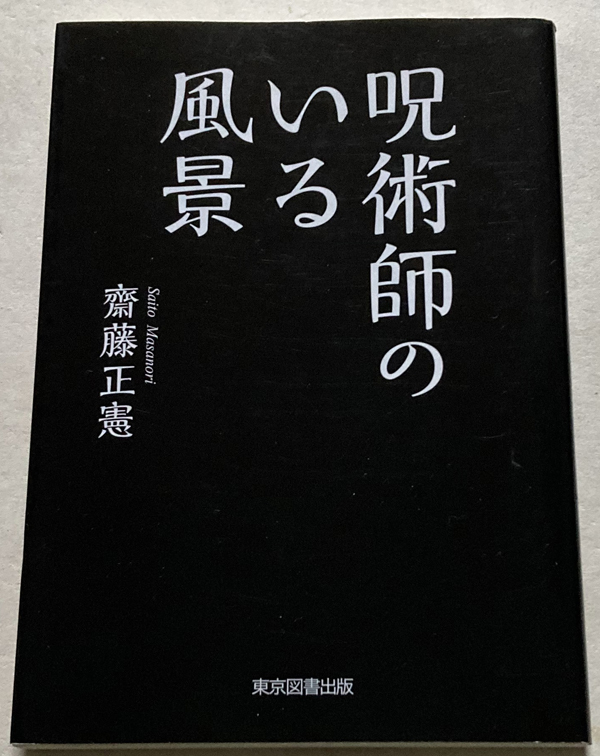 呪術師の
いる
風景
Saito Masanori
齋藤正憲
東京図書出版